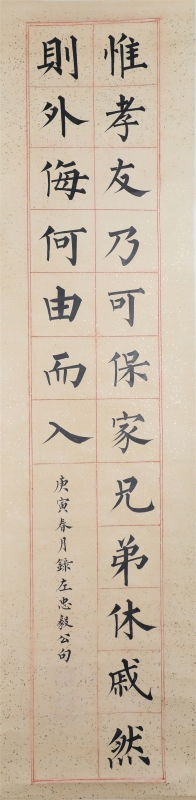 惟孝友乃可保家兄弟休戚然
則外侮何由而入
庚寅春月錄左忠毅公句